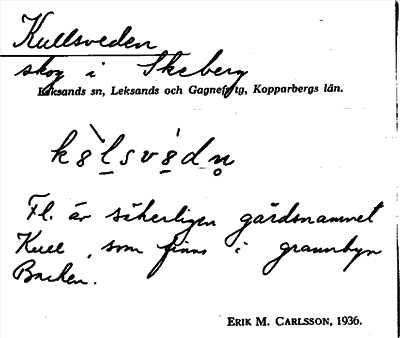 Kullsveden
skog i Skeberg
Leksands sn, Leksands och Gagnefs tg, Kopparbergs län.
k8̱lsv8̱dn̥
F.l. är säkerligen gårdsnamnet
Kull, som finns i grannbyn
Backen.
ERIK M. CARLSSON, 1936.